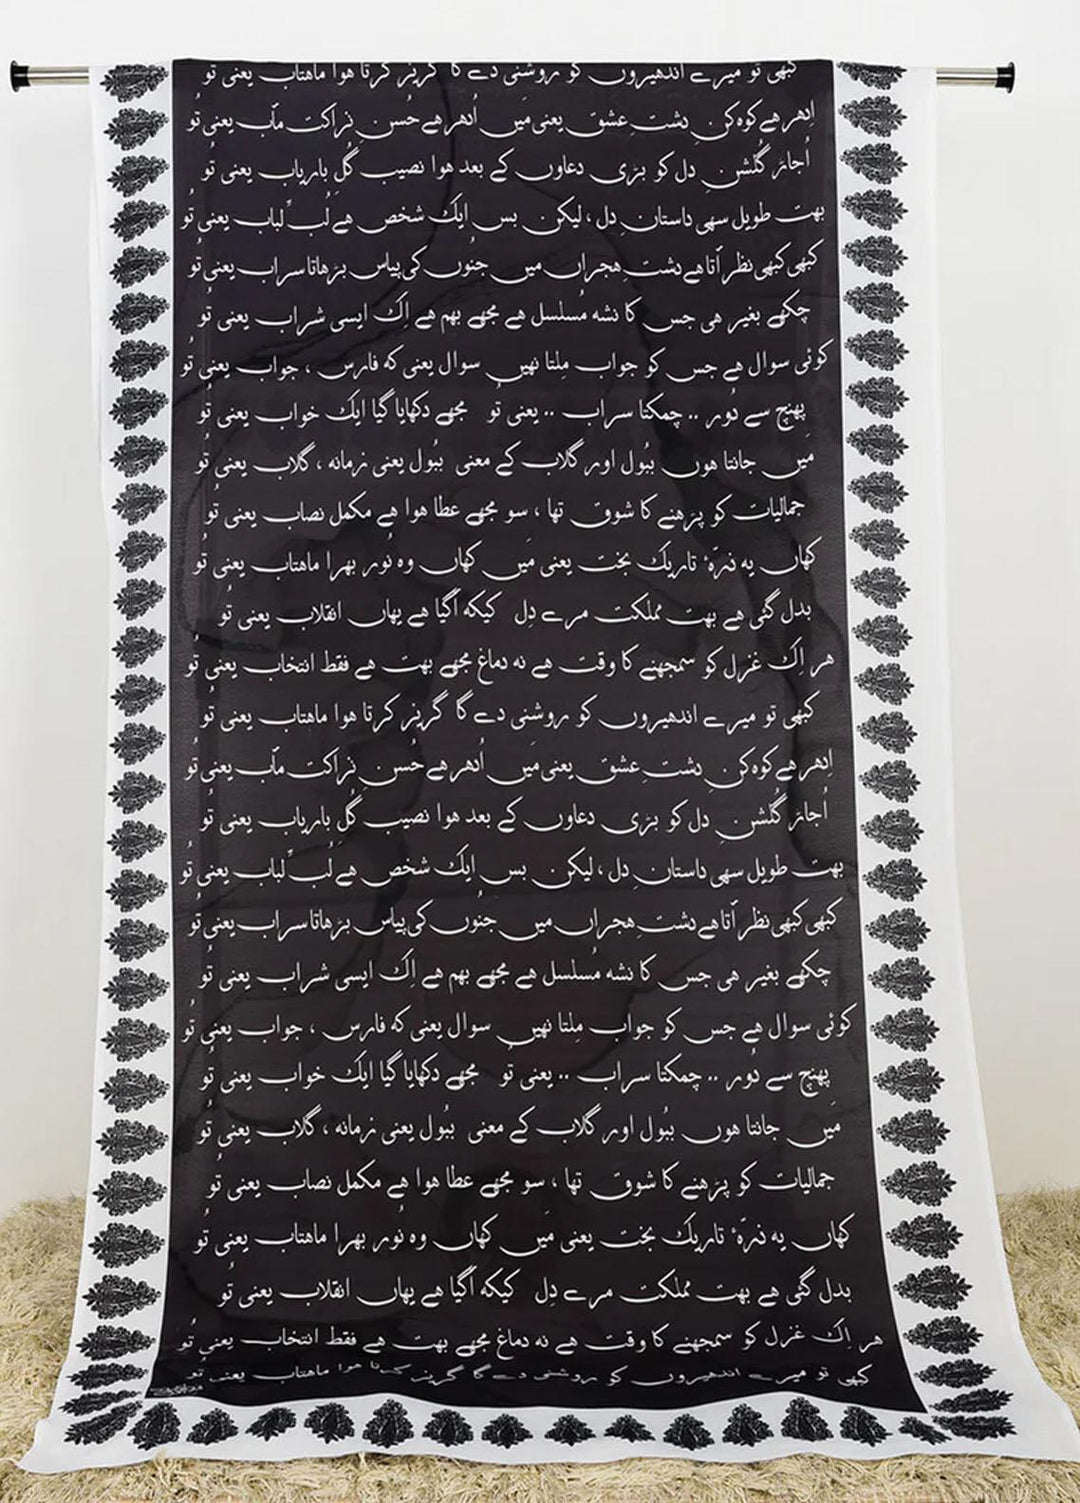 کبھی تو میرے اندھیروں کو روشنی دے گا گریز کرتا ہوا ماہتاب یعنی تُو
اِدھر ہے کوہ کنِ دشتِ عشق یعنی مَیں اُدھر ہے حُسنِ نزاکت مآب یعنی تُو
اُجاڑ گُلشنِ دل کو بڑی دعاوں کے بعد ہوا نصیب گُلِ باریاب یعنی تُو
بہت طویل سہی داستانِ دِل، لیکن بس ایک شخص ہے لُبِّ لباب یعنی تُو
کبھی کبھی نظر آتا ہے دشتِ ہجراں میں جنُوں کی پیاس بڑھاتا سراب یعنی تُو
چکھے بغیر ہی جس کا نشہ مُسلسل ہے مجھے بہم ہے اِک ایسی شراب یعنی تُو
کوئی سوال ہے جس کو جواب مِلتا نہیں سوال یعنی کہ فارس، جواب یعنی تُو
پہنچ سے دُور .. چمکتا سراب .. یعنی تُو مجھے دکھایا گیا ایک خواب یعنی تُو
مَیں جانتا ہوں ببُول اور گلاب کے معنی ببُول یعنی زمانہ، گلاب یعنی تُو
جمالیات کو پڑھنے کا شوق تھا، سو مجھے عطا ہوا ہے مکمل نصاب یعنی تُو
کہاں یہ ذرّہٴ تاریک بخت یعنی مَیں کہاں وہ نُور بھرا ماہتاب یعنی تُو
بدل گئی ہے بہت مملکت مرے دِل کیکہ آگیا ہے یہاں انقلاب یعنی تُو
ہر اِک غزل کو سمجھنے کا وقت ہے نہ دماغ مجھے بہت ہے فقط انتخاب یعنی تُو
کبھی تو میرے اندھیروں کو روشنی دے گا گریز کرتا ہوا ماہتاب یعنی تُو
اِدھر ہے کوہ کنِ دشتِ عشق یعنی مَیں اُدھر ہے حُسنِ نزاکت مآب یعنی تُو
اُجاڑ گُلشنِ دل کو بڑی دعاوں کے بعد ہوا نصیب گُلِ باریاب یعنی تُو
بہت طویل سہی داستانِ دِل، لیکن بس ایک شخص ہے لُبِّ لباب یعنی تُو
کبھی کبھی نظر آتا ہے دشتِ ہجراں میں جنُوں کی پیاس بڑھاتا سراب یعنی تُو
چکھے بغیر ہی جس کا نشہ مُسلسل ہے مجھے بہم ہے اِک ایسی شراب یعنی تُو
کوئی سوال ہے جس کو جواب مِلتا نہیں سوال یعنی کہ فارس، جواب یعنی تُو
پہنچ سے دُور .. چمکتا سراب .. یعنی تُو مجھے دکھایا گیا ایک خواب یعنی تُو
مَیں جانتا ہوں ببُول اور گلاب کے معنی ببُول یعنی زمانہ، گلاب یعنی تُو
جمالیات کو پڑھنے کا شوق تھا، سو مجھے عطا ہوا ہے مکمل نصاب یعنی تُو
کہاں یہ ذرّہٴ تاریک بخت یعنی مَیں کہاں وہ نُور بھرا ماہتاب یعنی تُو
بدل گئی ہے بہت مملکت مرے دِل کیکہ آگیا ہے یہاں انقلاب یعنی تُو
ہر اِک غزل کو سمجھنے کا وقت ہے نہ دماغ مجھے بہت ہے فقط انتخاب یعنی تُو
کبھی تو میرے اندھیروں کو روشنی دے گا گریز کرتا ہوا ماہتاب یعنی تُو